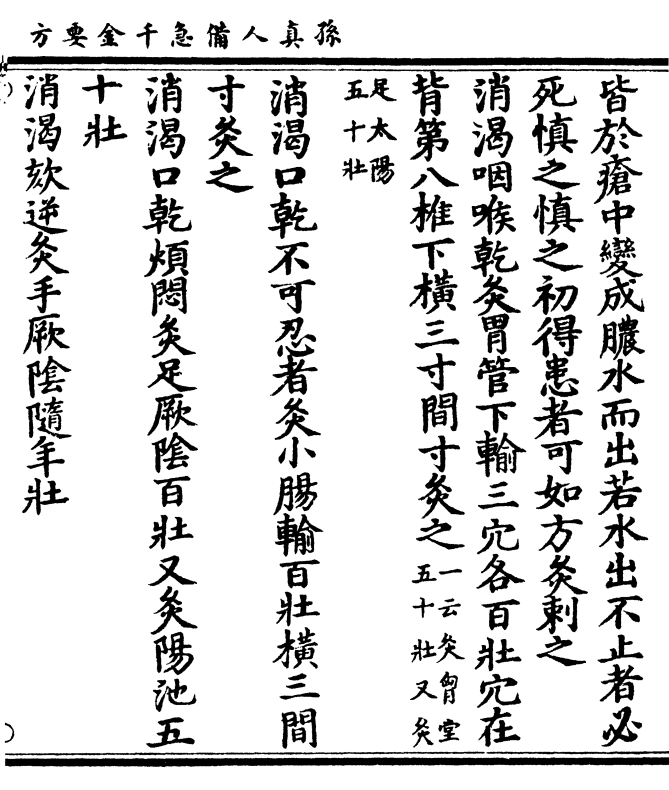 孫真人備急千金要方
皆於瘡中變成膿水而出若水出不止者必
死慎之慎之初得患者可如方灸刺之
消渴咽喉乾灸胃管下輸三穴各百壯穴在
背第八椎下橫三寸間寸灸之一云灸胷堂五十壯又灸
足太陽五十壯
消渴口乾不可忍者灸小腸輸百壯橫三間
寸灸之
消渴口乾煩悶灸足厥陰百壯又灸陽池五
十壯
消渴欬逆灸手厥陰隨年壯